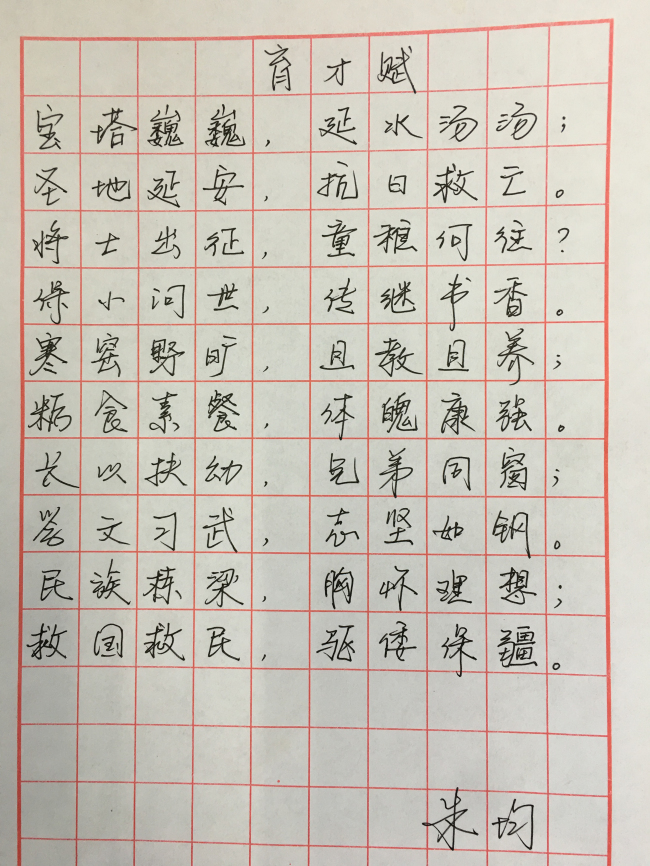 育才赋
宝塔巍巍，延水汤汤；
圣地延安，抗日救亡。
将士出征，童稚何往？
保小问世，传继书香。
寒窑野旷，且教且养；
粝食素餐，体魄康强。
长以扶幼，兄弟同窗；
学文习武，志坚如钢。
民族栋梁，胸怀理想；
救国救民，驱倭保疆。
朱均